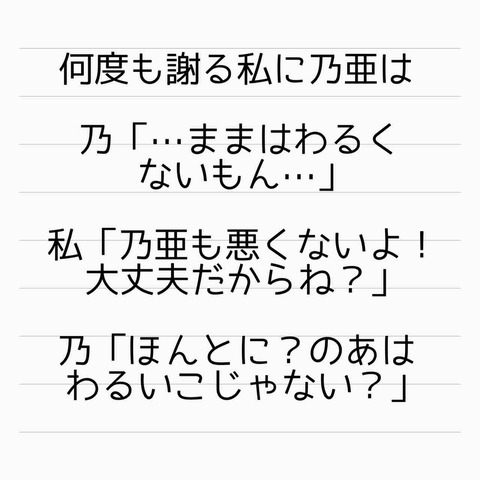 何度も謝る私に乃亜は
乃「…ままはわるく
ないもん…」
私「乃亜も悪くないよ！
大丈夫だからね？」
乃「ほんとに？のあは
わるいこじゃない？」